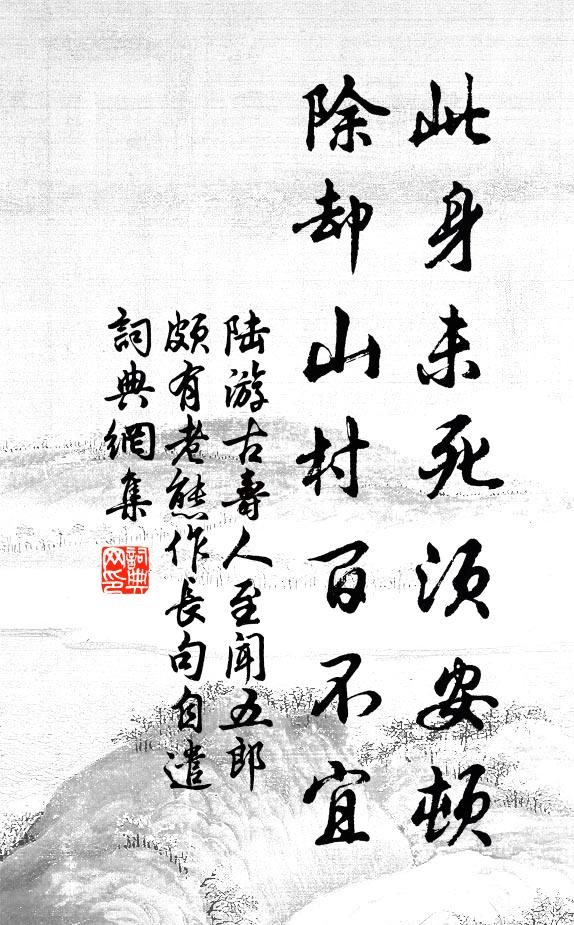 此身未死須安頓
除却山村百不宜
陆游古壽人至闻五郎
頗有老態作長句自遣
詞典網集
詞典网印